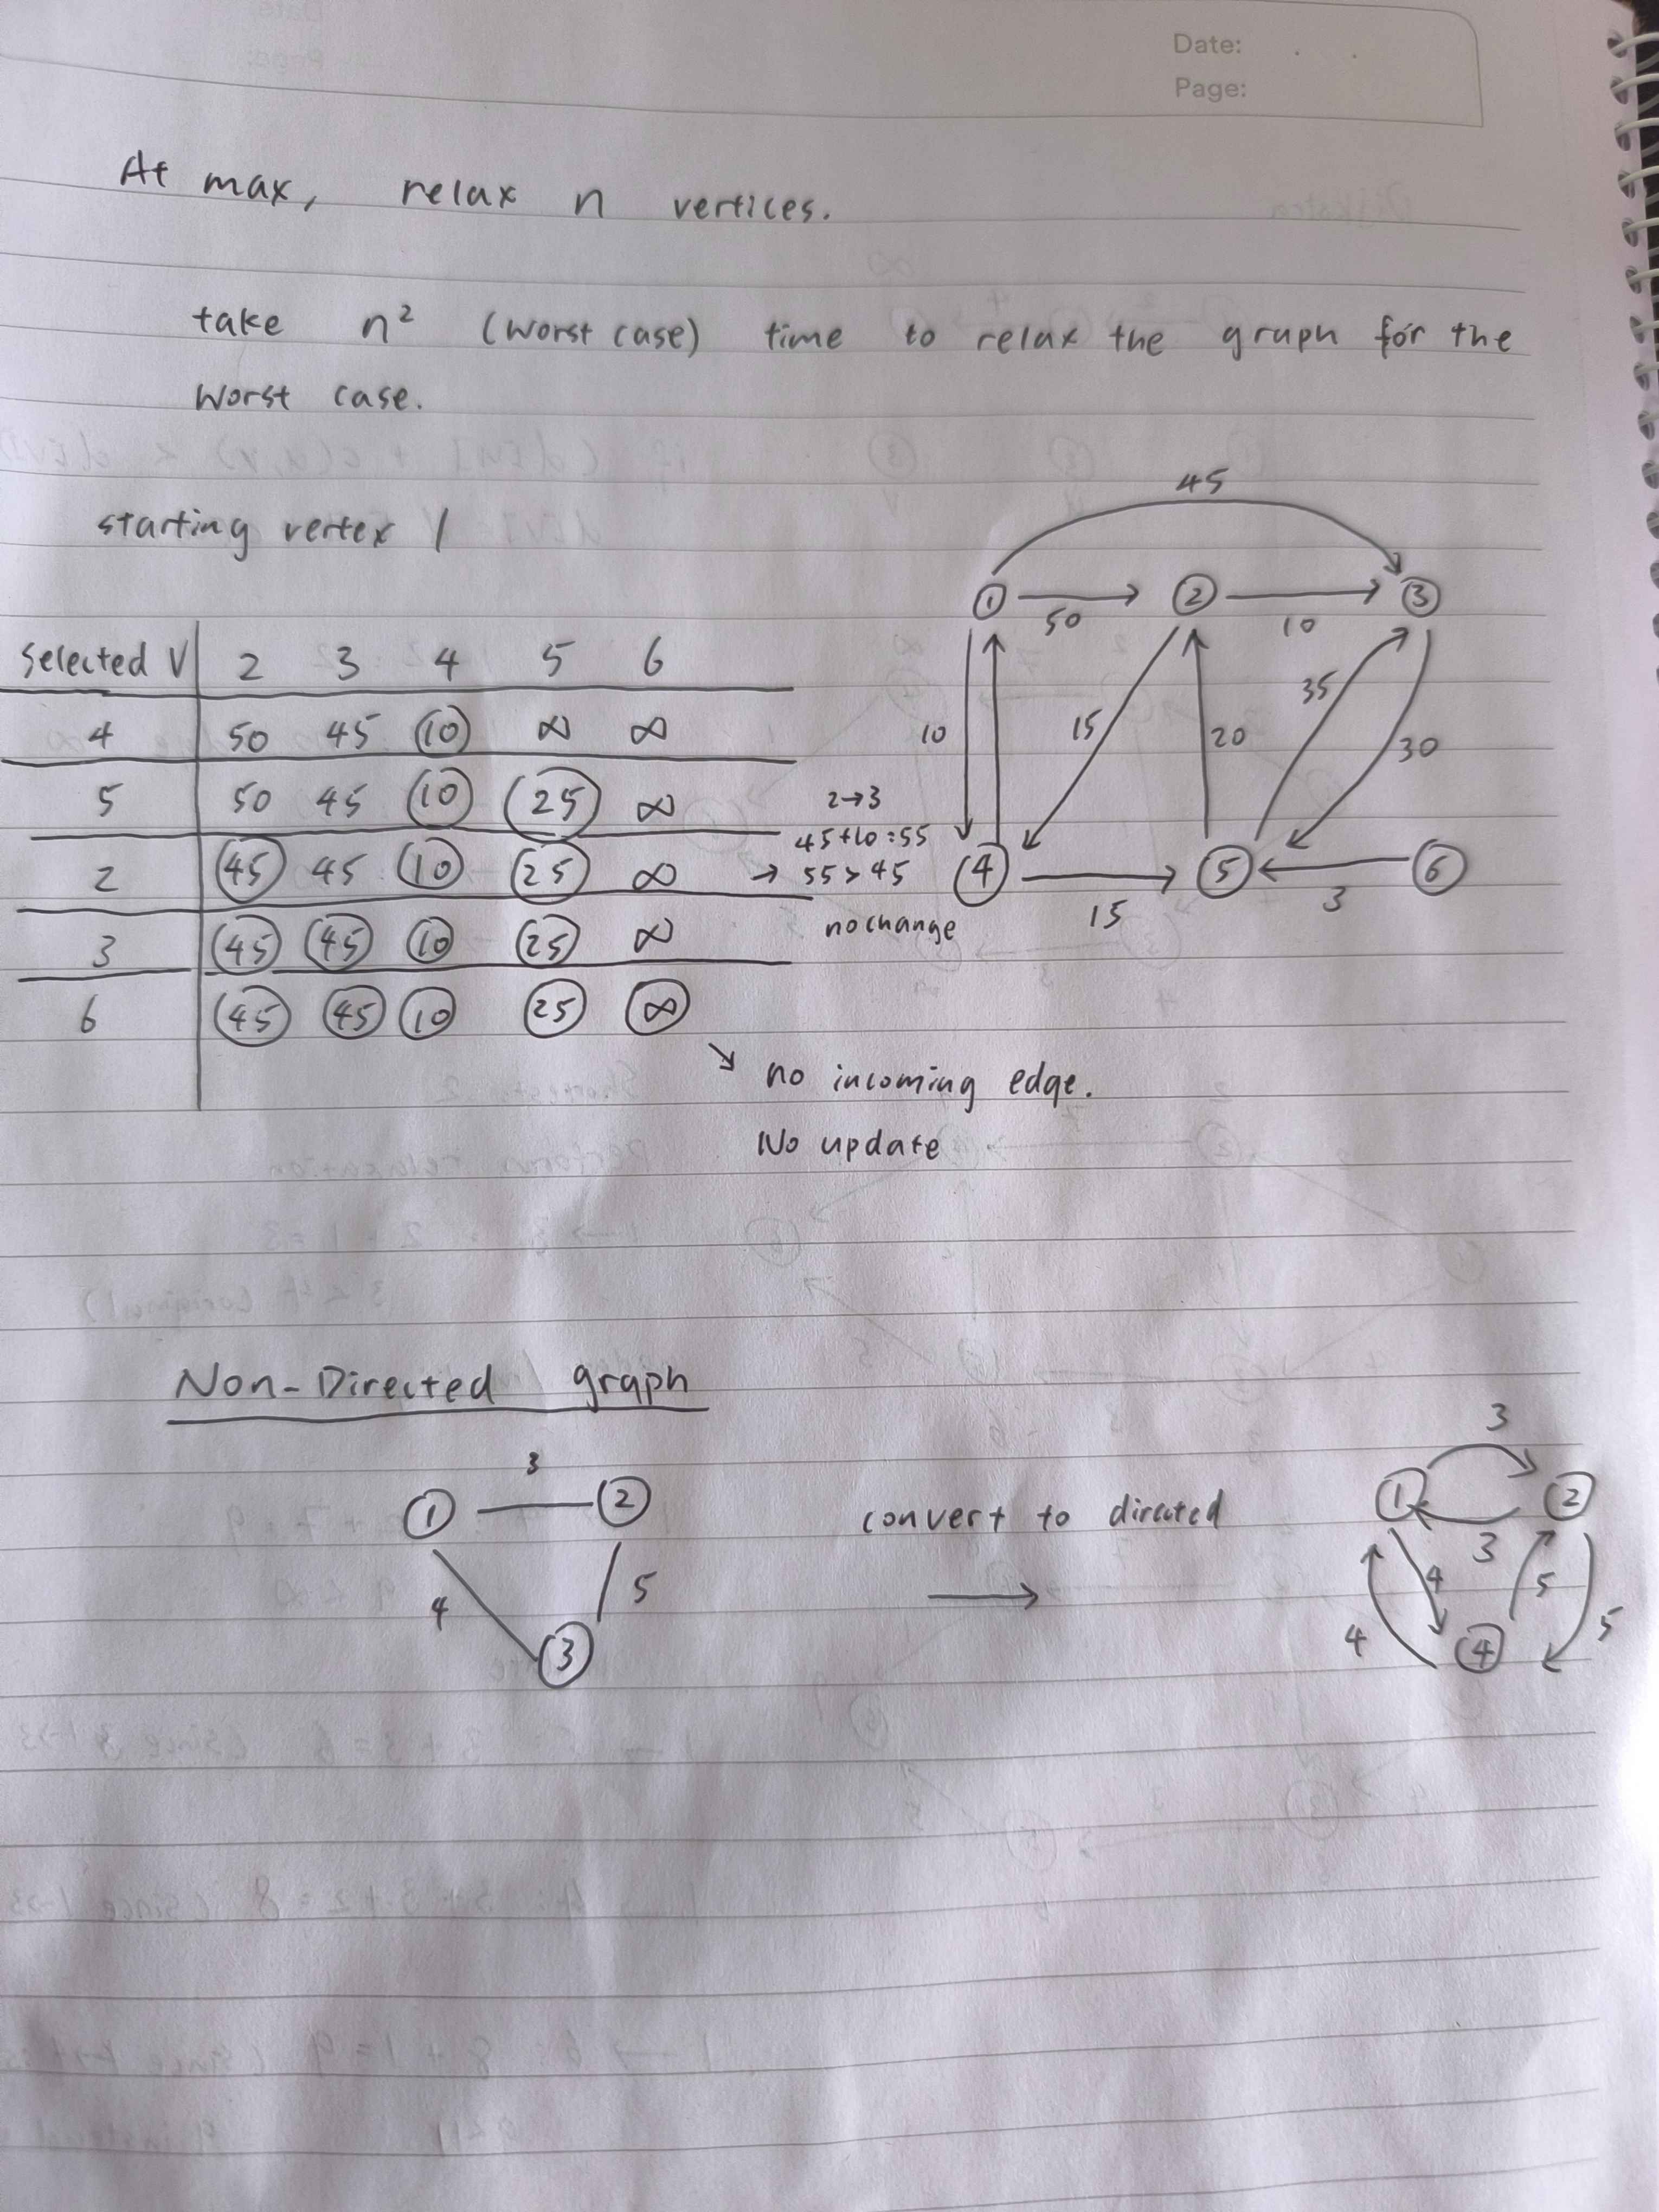 Date: . .
Page:
At max, relax n vertices.
take n² (worst case) time to relax the graph for the
worst case.
starting vertex 1
45
1 50 2 10 3
10 15 20 35 30
4 15 5 3 6
Selected V 2 3 4 5 6
4 50 45 10 ∞ ∞
5 50 45 10 25 ∞
2 45 45 10 25 ∞
3 45 45 10 25 ∞
6 45 45 10 25 ∞
2→3
45+10=55
→ 55 > 45
no change
↘ no incoming edge.
No update
Non-Directed graph
3
1 2
4 5
3
convert to directed
→
3
1 2
3
4 4 5 5
4